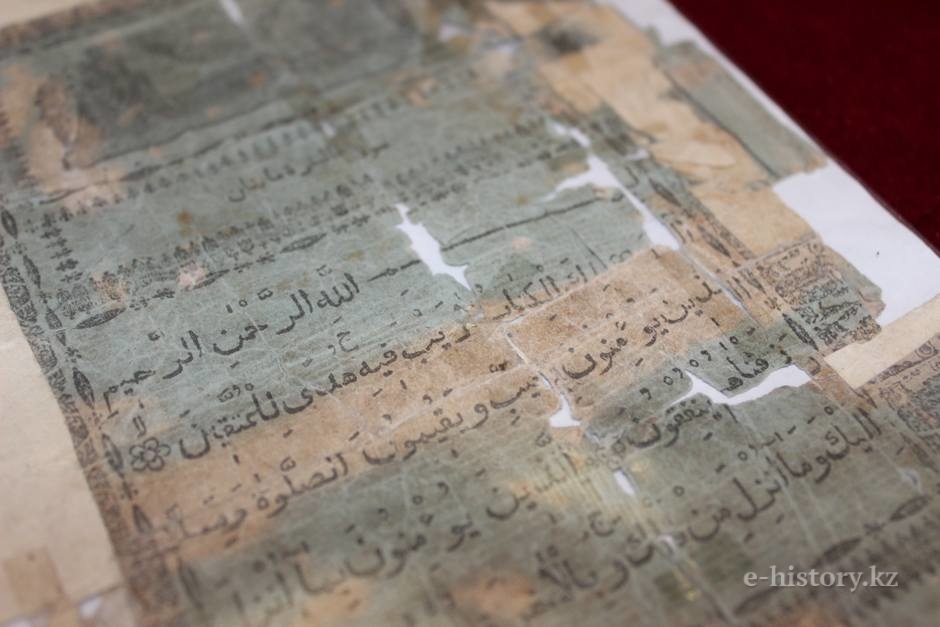 الله الرحمٰن الرَّحِيمِ
ذٰلِكَ الْكِتَابُ لَا رَيْبَ فِيهِ هُدًى لِلْمُتَّقِينَ
الَّذِينَ يُؤْمِنُونَ بِالْغَيْبِ وَيُقِيمُونَ الصَّلٰوةَ وَمِمَّا
رَزَقْنَاهُمْ يُنْفِقُونَ وَالَّذِينَ يُؤْمِنُونَ بِمَا أُنْزِلَ
إِلَيْكَ وَمَا أُنْزِلَ مِنْ قَبْلِكَ وَبِالْآخِرَةِ
e-history.kz